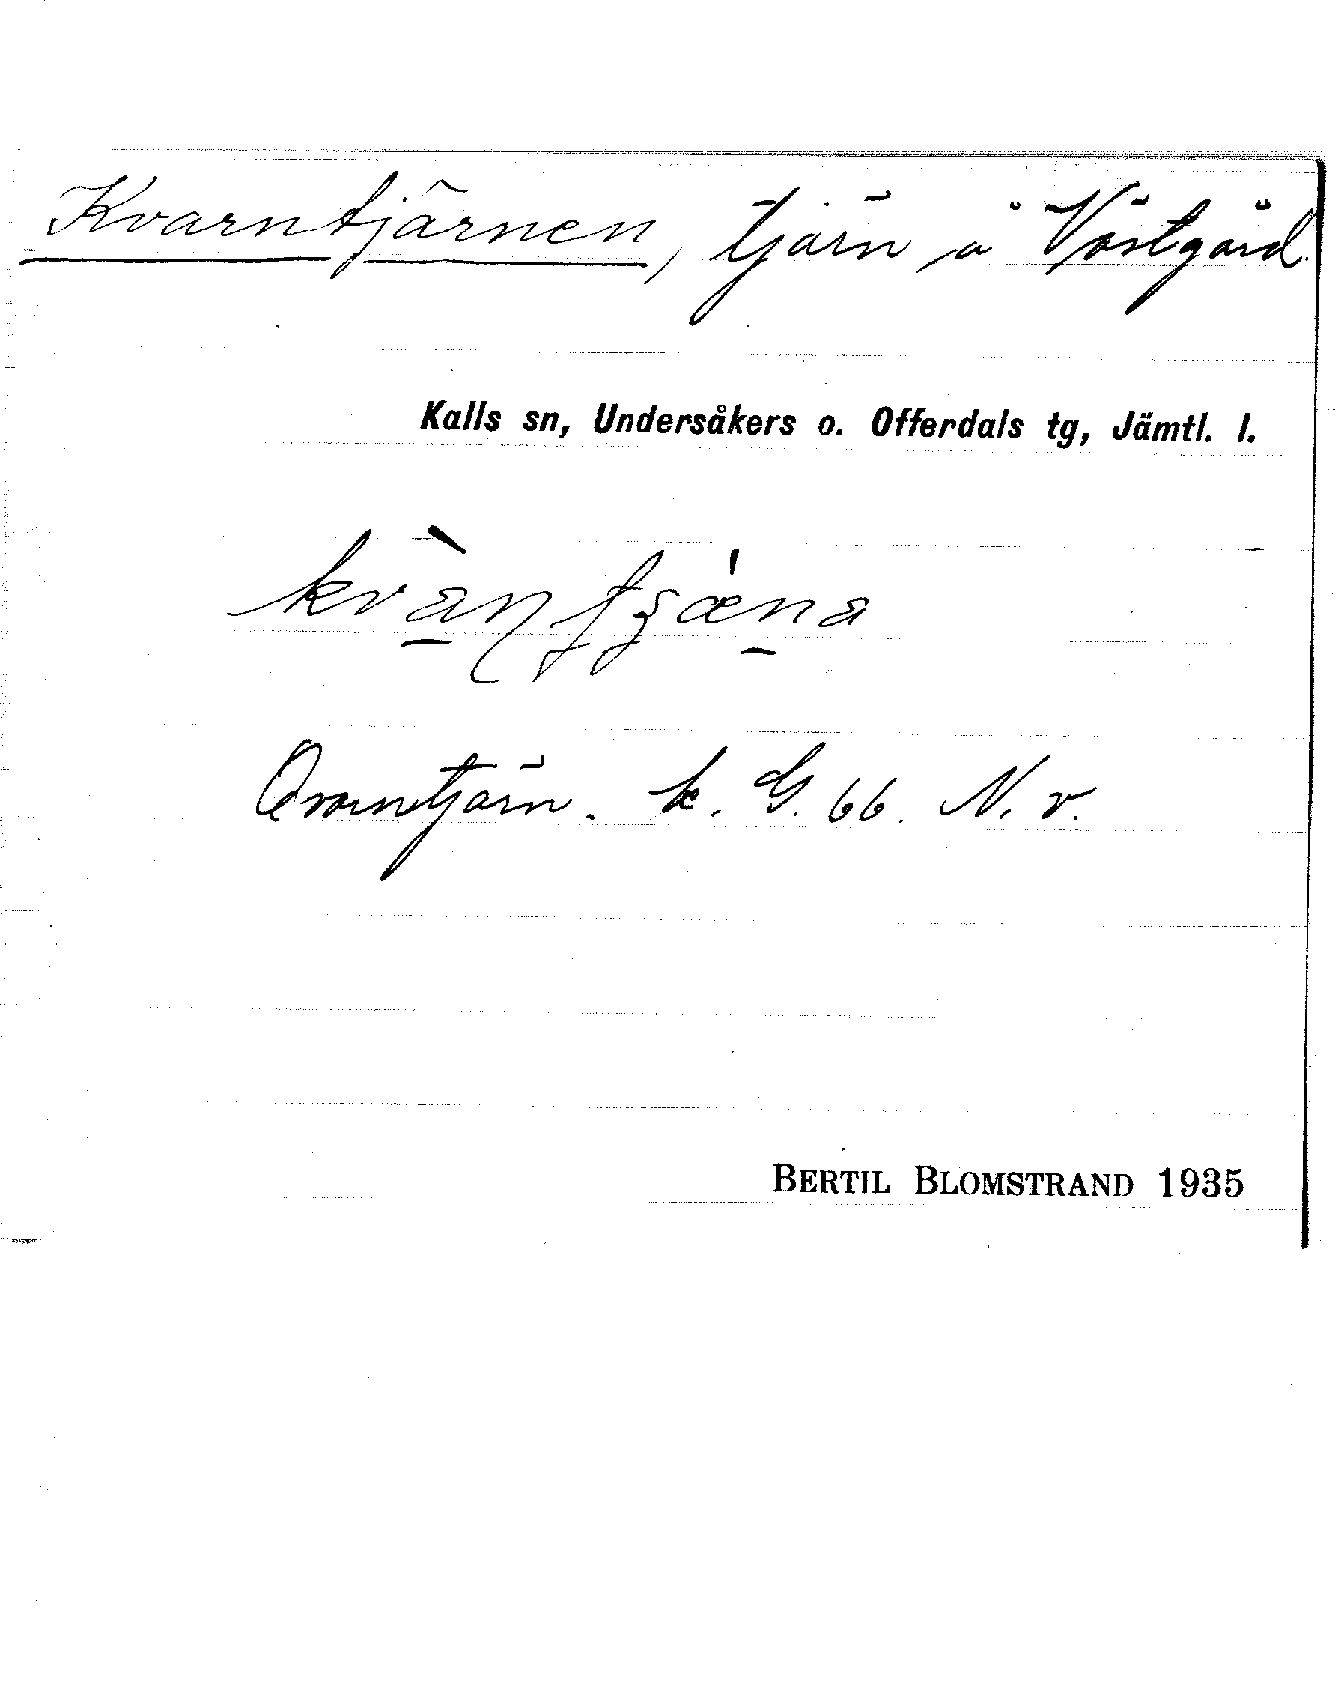 Kvarntjärnen, tjärn å Västgård.
Kalls sn, Undersåkers o. Offerdals tg, Jämtl. l.
Qvarntjärn. k. G. 66. N. v.
BERTIL BLOMSTRAND 1935